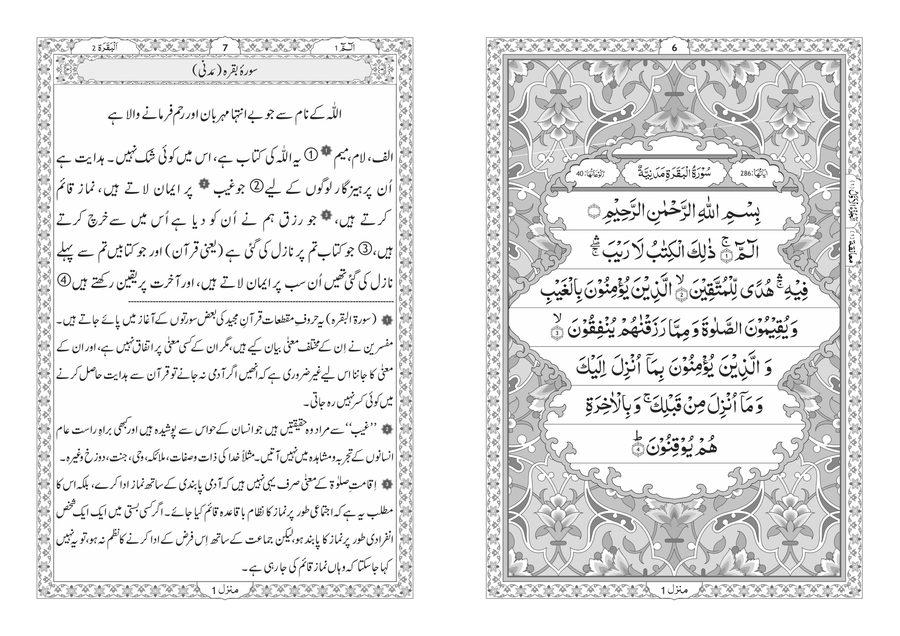 6
سُوْرَةُ الْبَقَرَةِ مَدَنِيَّةٌ
اٰيَاتُهَا: 286
رُكُوْعَاتُهَا: 40
بِسْمِ اللّٰهِ الرَّحْمٰنِ الرَّحِيْمِ
الٓمّٓ ۚ ﴿۱﴾ ذٰلِكَ الْكِتٰبُ لَا رَيْبَ ۛۖ
فِيْهِ ۛۚ هُدًى لِّلْمُتَّقِيْنَ ۙ ﴿۲﴾ الَّذِيْنَ يُؤْمِنُوْنَ بِالْغَيْبِ
وَ يُقِيْمُوْنَ الصَّلٰوةَ وَ مِمَّا رَزَقْنٰهُمْ يُنْفِقُوْنَ ۙ ﴿۳﴾
وَ الَّذِيْنَ يُؤْمِنُوْنَ بِمَاۤ اُنْزِلَ اِلَيْكَ
وَ مَاۤ اُنْزِلَ مِنْ قَبْلِكَ ۚ وَ بِالْاٰخِرَةِ
هُمْ يُوْقِنُوْنَ ؕ ﴿۴﴾
منزل 1
الٓمّٓ 1
7
اَلْبَقَرَة 2
سورۂ بقرہ (مَدنی)
اللّٰہ کے نام سے جو بے انتہا مہربان اور رحم فرمانے والا ہے
الف، لام، میم ۞ ① یہ اللّٰہ کی کتاب ہے، اس میں کوئی شک نہیں۔ ہدایت ہے
اُن پرہیزگار لوگوں کے لیے ② جو غیب ۞ پر ایمان لاتے ہیں، نماز قائم
کرتے ہیں، ۞ جو رزق ہم نے اُن کو دیا ہے اُس میں سے خرچ کرتے
ہیں، ③ جو کتاب تم پر نازل کی گئی ہے (یعنی قرآن) اور جو کتابیں تم سے پہلے
نازل کی گئی تھیں اُن سب پر ایمان لاتے ہیں، اور آخرت پر یقین رکھتے ہیں ④
۞ (سورۃ البقرہ) یہ حروفِ مقطعات قرآنِ مجید کی بعض سورتوں کے آغاز میں پائے جاتے ہیں۔
مفسرین نے اِن کے مختلف معنی بیان کیے ہیں، مگر ان کے کسی معنی پر اتفاق نہیں ہے، اور ان کے
معنی کا جاننا اس لیے غیر ضروری ہے کہ انھیں اگر آدمی نہ جانے تو قرآن سے ہدایت حاصل کرنے
میں کوئی کسر نہیں رہ جاتی۔
۞ ’’غیب‘‘ سے مراد وہ حقیقتیں ہیں جو انسان کے حواس سے پوشیدہ ہیں اور کبھی براہِ راست عام
انسانوں کے تجربہ و مشاہدہ میں نہیں آتیں۔ مثلاً خدا کی ذات و صفات، ملائکہ، وحی، جنت، دوزخ وغیرہ۔
۞ اِقامتِ صلوٰۃ کے معنی صرف یہی نہیں ہیں کہ آدمی پابندی کے ساتھ نماز ادا کرے، بلکہ اس کا
مطلب یہ ہے کہ اجتماعی طور پر نماز کا نظام باقاعدہ قائم کیا جائے۔ اگر کسی بستی میں ایک ایک شخص
انفرادی طور پر نماز کا پابند ہو، لیکن جماعت کے ساتھ اِس فرض کے ادا کرنے کا نظم نہ ہو، تو یہ نہیں
کہا جا سکتا کہ وہاں نماز قائم کی جا رہی ہے۔
منزل 1